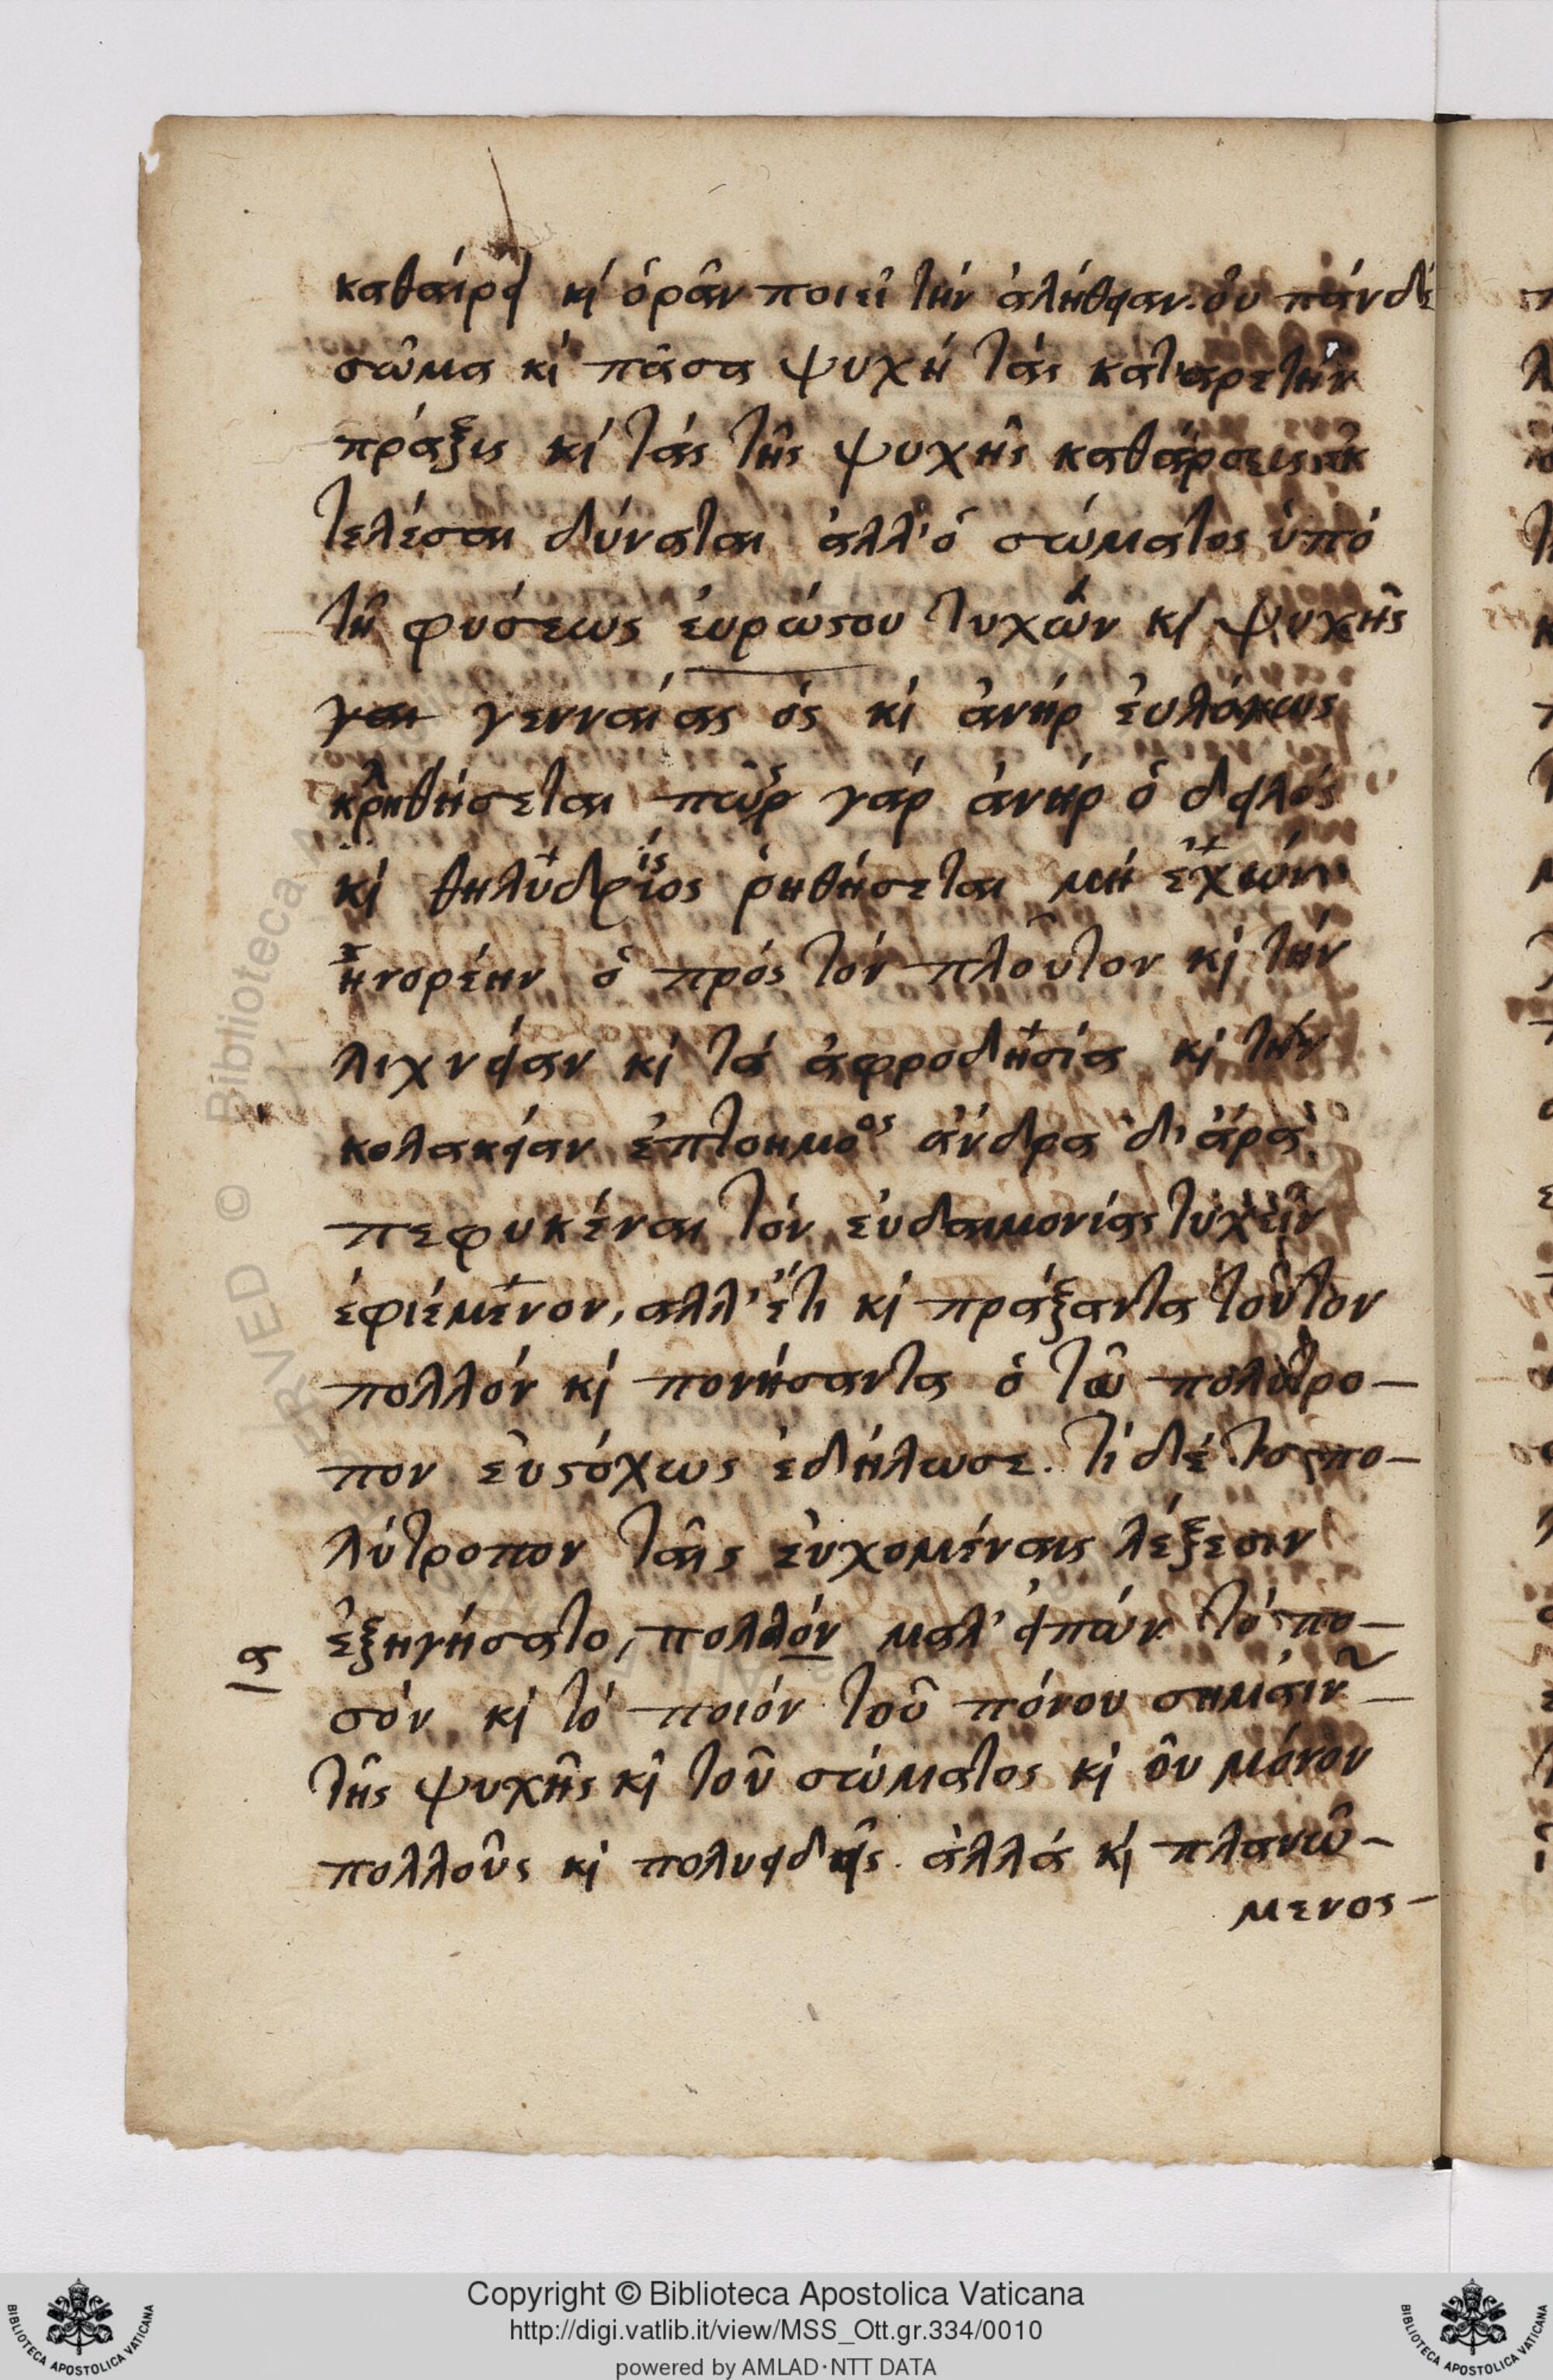 καθαίρει κὶ ὁρᾶν ποιεῖ τὴν ἀλήθειαν. οὐ πᾶν δὲ
σῶμα κὶ πᾶσα ψυχή τάς κατ' ἀρετὴν
πράξεις κὶ τάς τῆς ψυχῆς καθάρσεις ἐκ
τελέσαι δύναται ἀλλ' ὁ σώματος ὑπὸ
τῆ φύσεως εὐρώστου τυχὼν κὶ ψυχῆς
γεν γενναίας ὃς κὶ ἀνήρ εὐλόγως
κληθήσεται πῶς γάρ ἀνὴρ ὁ δειλός
κὶ θηλυδρίας ῥηθήσεται μὴ ἔχων
ἠνορέην ὁ πρὸς τὸν πλοῦτον κὶ τὴν
λιχνείαν κὶ τὰ ἀφροδήσια κὶ τὴν
κολακείαν ἐπτοημένος ἄνδρα δι' ἄρα
πεφυκέναι τὸν εὐδαιμονίας τυχεῖν
ἐφιέμενον, ἀλλ' ἔτι κὶ πράξαντα τοῦτον
πολλόν κὶ πονήσαντα ὁ τῶ πολύτρο-
πον εὐστόχως ἐδήλωσε. τί δέ το πο-
λύτροπον ταῖς ἐχομέναις λέξεσιν
ἐξηγήσατο, πολλόν μαλ' εἰπών τό πο-
σὸν κὶ τό ποιόν τοῦ πόνου σημαίν-
τῆς ψυχῆς κὶ τοῦ σώματος κὶ οὐ μόνον
πολλοῦς κὶ πολυειδεῖς ἀλλά κὶ πλανώ-
μενος-
α
Copyright © Biblioteca Apostolica Vaticana
http://digi.vatlib.it/view/MSS_Ott.gr.334/0010
powered by AMLAD·NTT DATA
BIBLIOTECA APOSTOLICA VATICANA
BIBLIOTECA APOSTOLICA VATICANA